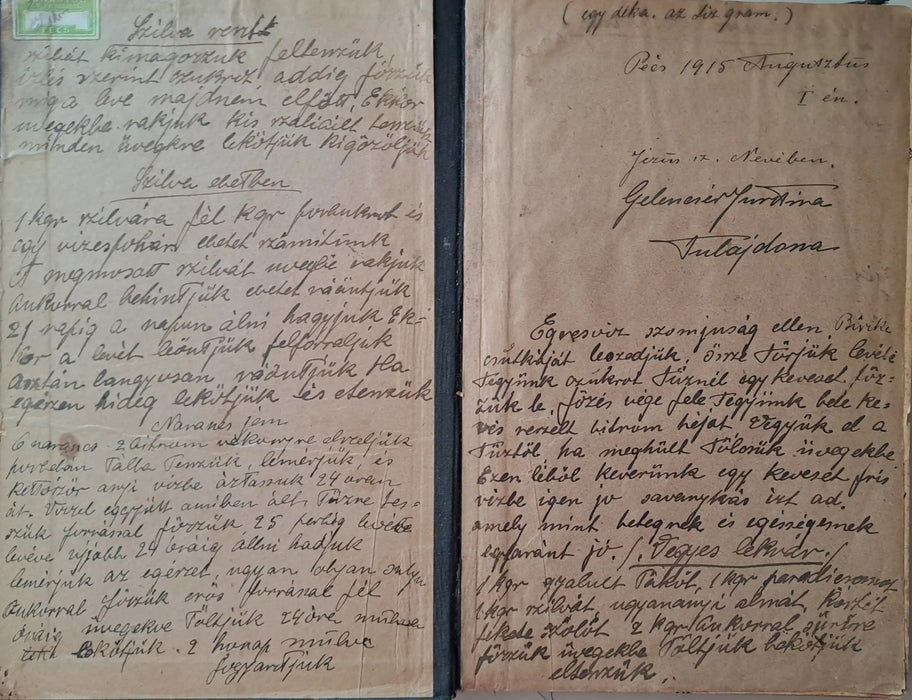 PÉCS
Szilva rontt
szilvát kimagozzuk feltenzük
izlés szerint czukroz addig főzzük
mig a leve majdném elfőtt, Ekkor
üvegekbe rakjuk kis szalicilt tenzünk
minden üvegkre lekötjük kigőzöljük
Szilva ehetben
1 kgr szilvára fél kgr porcukrot és
egy vizespohár ehetet számitunk
A megmosott szilvát üvegbe rakjuk
czukorral behintjük ehetet ráöntjük
21 napig a napon álni hagyjuk Ek-
kor a levét leöntjük felforraljuk
asztán langyosan ráöntjük Ha
egészen hideg lekötjük és eltenzük
Narancs jem
6 narancs 2 bitrom vékonyre elszeljük
porzelán tálba tenzük, lemérjük, és
kettőször anyi vizbe áztassuk 24 oran
át. Vizzel együtt amiben ált Tűzre tes-
szük forrással főzzük 25 perzig
levéve ujobb 24 óráig állni hadjuk
lemérjük az egészet, ugyan olyan suly
czukorral főzzük erős forrással fél
óráig üvegekve Töltjük 24 óra mulva
lekötjük. 2 honap mulve
fogyartjuk
(egy déka. az tiz gram.)
Pécs 1915 Augusztus
1 én.
Jézus sz. Nevében.
Gelencsér Jusztina
Tulajdona
Egresviz szomjuság ellen Bürke
csutkáját lehozdjük, össze Törjük levébe
tegyünk czukrot Tűznél egy keveset főz-
zük le. főzés vege fele Tegyünk bele ke-
vés reszelt bitrom héját. Vegyük el a
Tűztől, ha meghült Töltsük üvegekbe
Ezen léből keverünk egy keveset fris
vizbe igen jo savanykás izt ad.
amely mint betegnek és egésségesnek
egyaránt jó. /. Vegyes lekvár. /
1 kgr gyalult Tököt, 1 kgr paradicsomot
1 kgr szilvát, ugyananyi almát,
fekete szőlőt 2 kgr czukorral sürüre
főzzük üvegekbe Töltjük bekötjük
eltenzük.